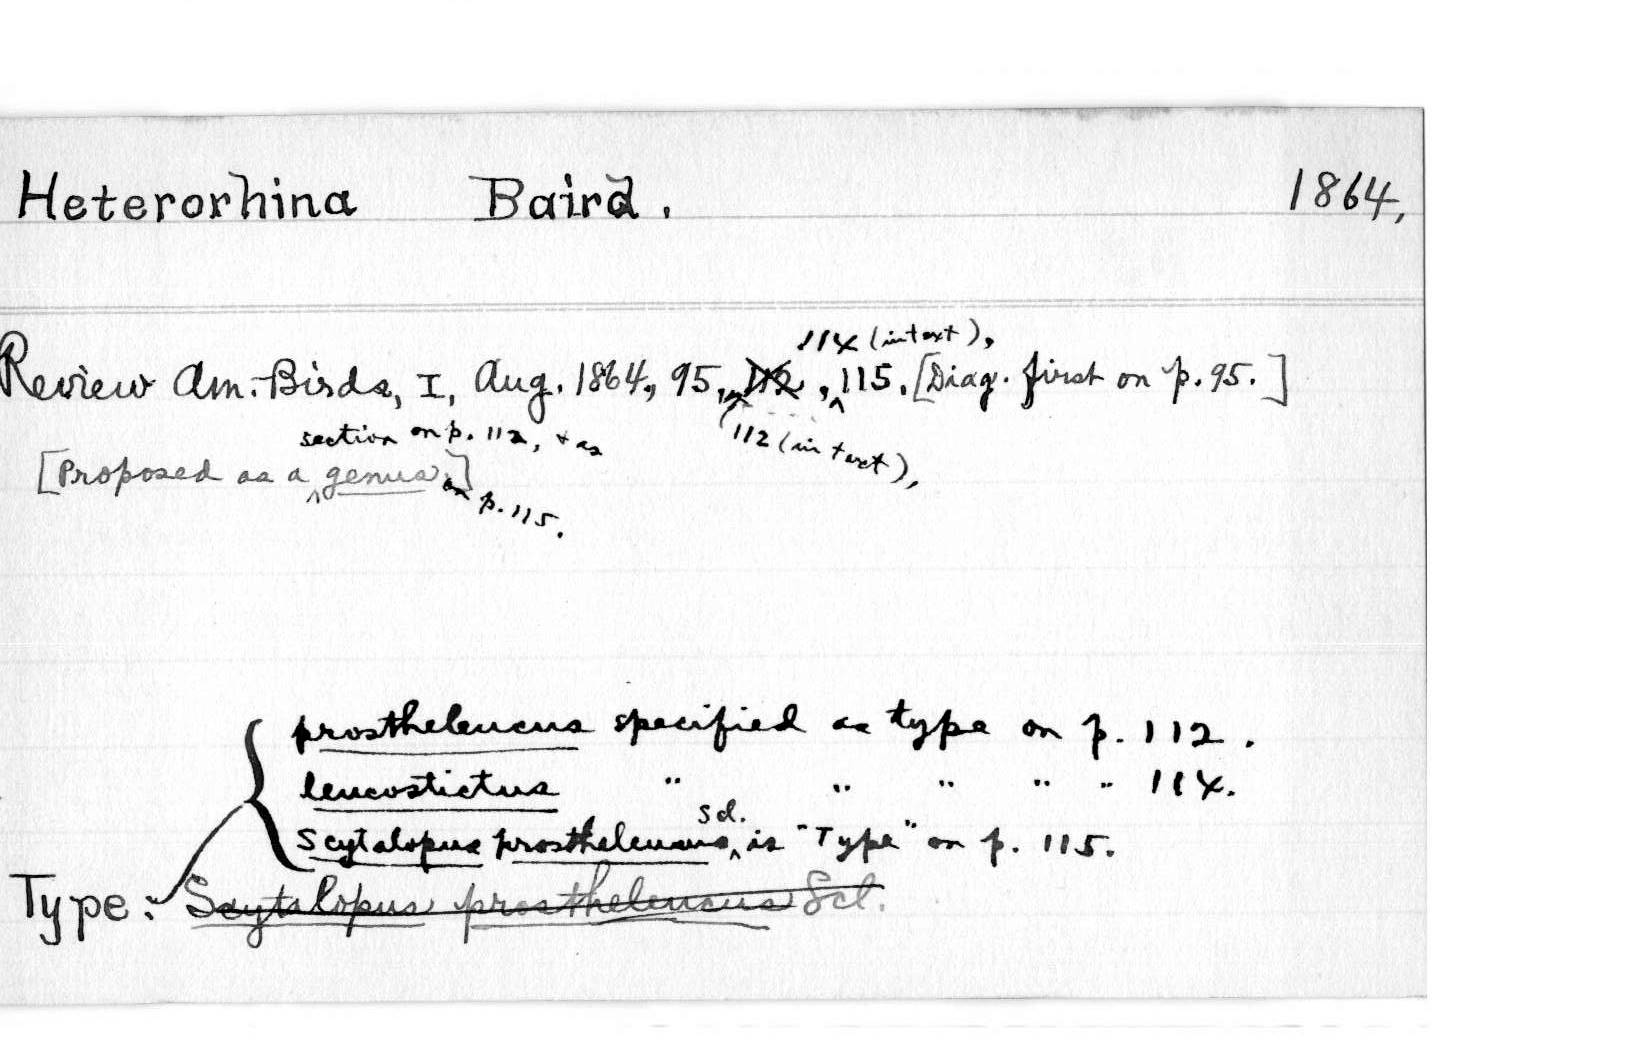 Heterorhina Baird. 1864,
Review Am. Birds, I, Aug. 1864, 95, 112 (in text), 114 (in text), 115. [Diag. first on p. 95.]
[Proposed as a section on p. 112, & as genus on p. 115.]
prostheleucus specified as type on p. 112.
leucostictus " " " " " 114.
Scytalopus prostheleucus Scl. is "Type" on p. 115.
Type: Scytalopus prostheleucus Scl.